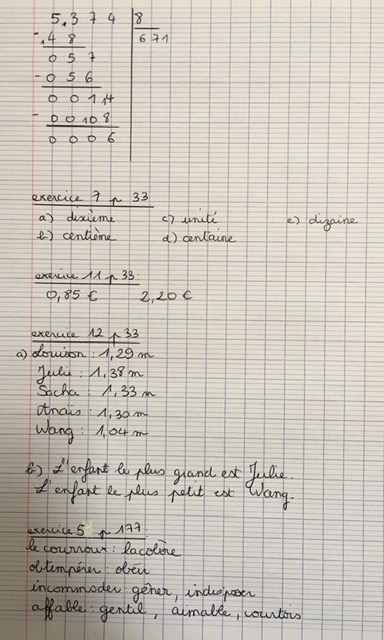 5,3 7 4 8
- 4 8 671
0 5 7
- 0 5 6
0 0 1 14
- 0 0 10 8
0 0 0 6
exercice 7 p 33
a) dixième c) unité e) dizaine
b) centième d) centaine
exercice 11 p 33.
0,85 € 2,20 €
exercice 12 p 33
a) Louison : 1,29 m
Julie : 1,38 m
Sacha : 1,33 m
Anaïs : 1,30 m
Wang : 1,04 m
b) L'enfant le plus grand est Julie.
L'enfant le plus petit est Wang.
exercice 5 p 177.
le courroux : la colère
obtempérer : obéir
incommoder gêner, indisposer
affable : gentil, aimable, courtois